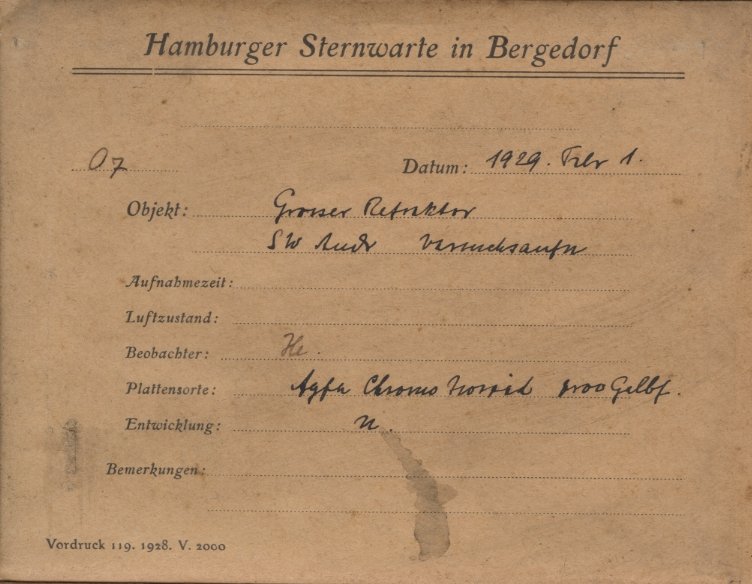 Hamburger Sternwarte in Bergedorf
O7 Datum: 1929. Febr 1.
Objekt: Grosser Refraktor
SW Andr Versuchsaufn
Aufnahmezeit:
Luftzustand:
Beobachter: He.
Plattensorte: Agfa Chromo Isorapid Gelbf.
Entwicklung: n.
Bemerkungen:
Vordruck 119. 1928. V. 2000